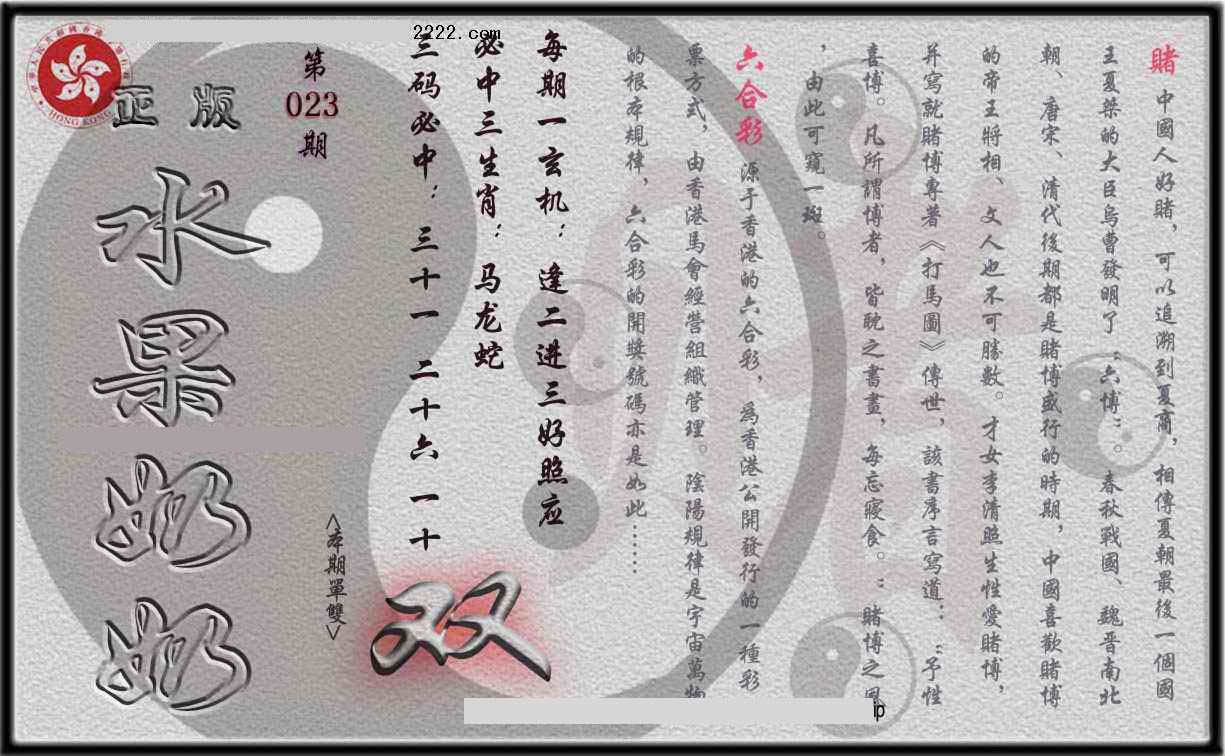 賭 中國人好賭，可以追溯到夏商，相傳夏朝最後一個國
王夏桀的大臣烏曹發明了“六博”。春秋戰國、魏晉南北
朝、唐宋、清代後期都是賭博盛行的時期，中國喜歡賭博
的帝王將相、文人也不可勝數。才女李清照生性愛賭博，
并寫就賭博專著《打馬圖》傳世，該書序言寫道：“予性
喜博。凡所謂博者，皆耽之書畫，每忘寢食。”賭博之風
，由此可窺一斑。
六合彩 源于香港的六合彩，為香港公開發行的一種彩
票方式，由香港馬會經營組織管理。陰陽規律是宇宙萬物
的根本規律，六合彩的開獎號碼亦是如此……
每期一玄机：逢二进三好照应
必中三生肖：马龙蛇
三码必中：三十一 二十六 一十
2222.com
第
023
期
正版
水果奶奶
<本期單雙>
双
HONG KONG
ip